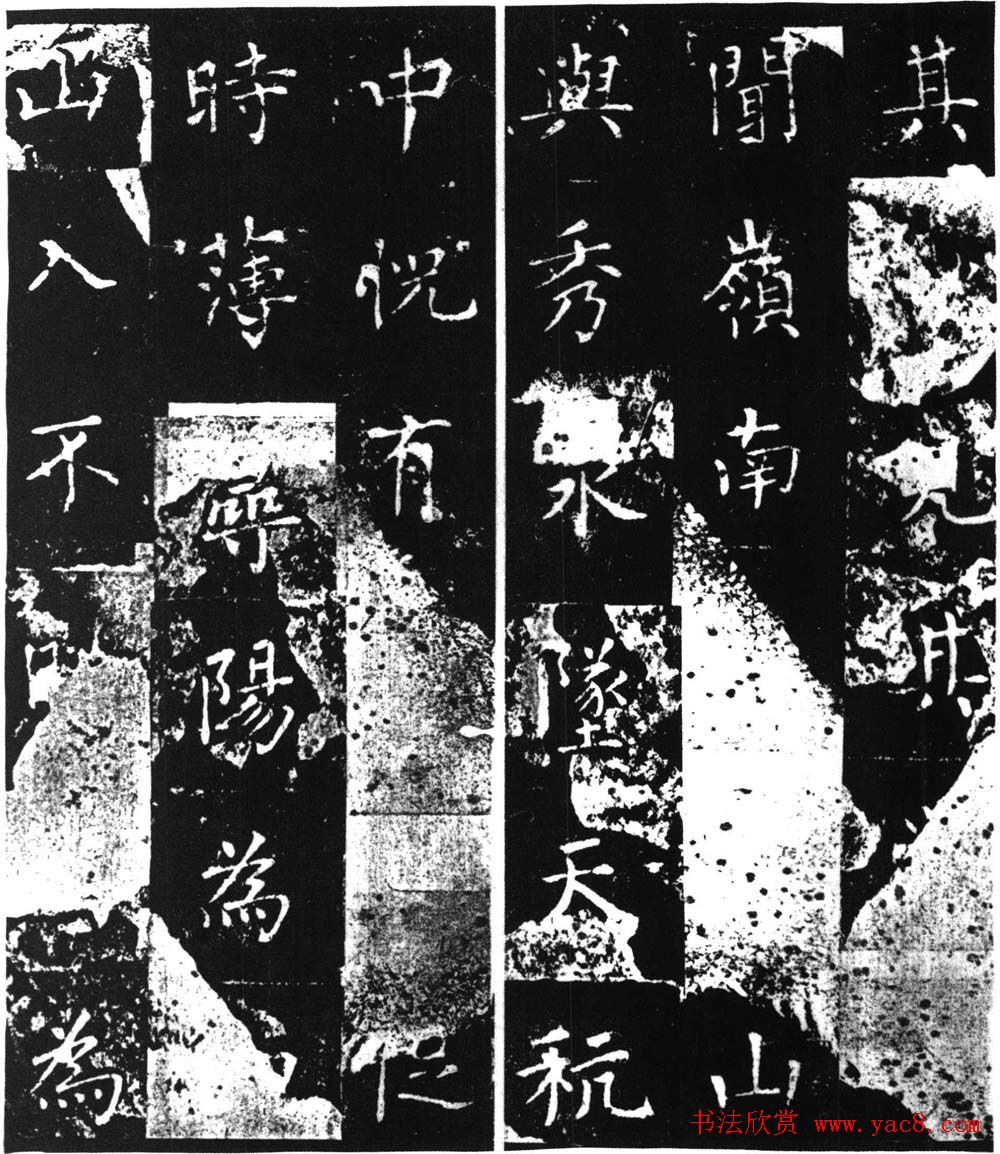 其兄其
聞嶺南山
與秀水墜天秔
中怳有促
時薄尋陽為
山入不為
书法欣赏 www.yac8.com